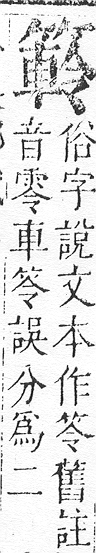 俗字說文本作笭舊註
音零車笭誤分爲二